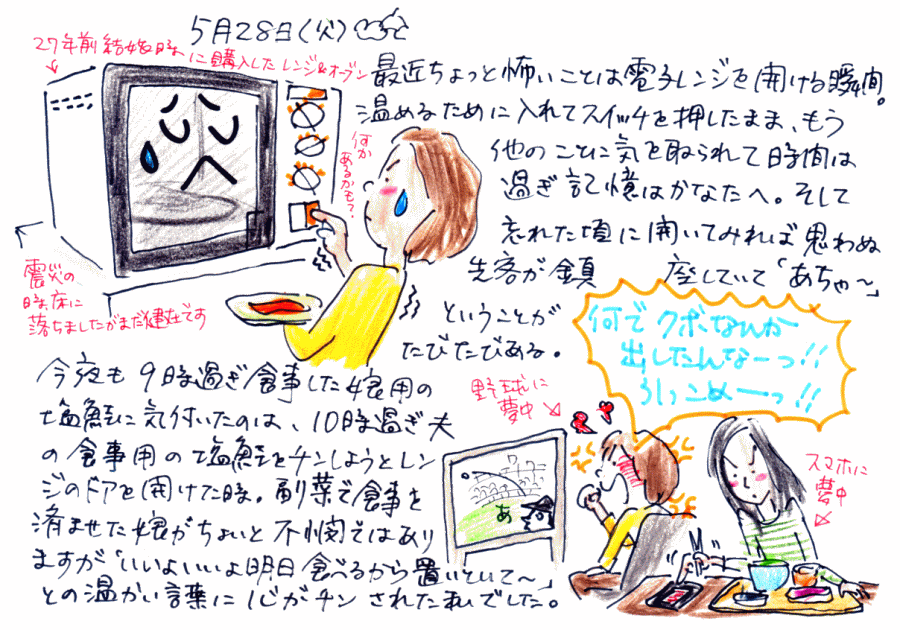 5月28日(火)
27年前 結婚時
に購入した レンジ&オーブン
最近ちょっと怖いことは電子レンジを開ける瞬間。
温めるために入れてスイッチを押したまま、もう
他のことに気を取られて時間は
過ぎ記憶はかなたへ。そして
忘れた頃に開いてみれば思わぬ
先客が鎮座していて「あちゃ〜」
ということが
たびたびある。
何か
あるかも?
震災の
時、床に
落ちましたがまだ健在です
何でクボなんか
出したんなーっ!!
引っこめーっ!!
今夜も9時過ぎ食事した娘用の
塩鮭に気付いたのは、10時過ぎ夫
の食事用の塩鮭をチンしようとレン
ジのドアを開けた時。副菜で食事を
済ませた娘がちょいと不憫ではあり
ますが「いいよいいよ明日食べるから置いといて〜」
との温かい言葉に心がチンされた私でした。
野球に
夢中
あ
スマホに
夢中